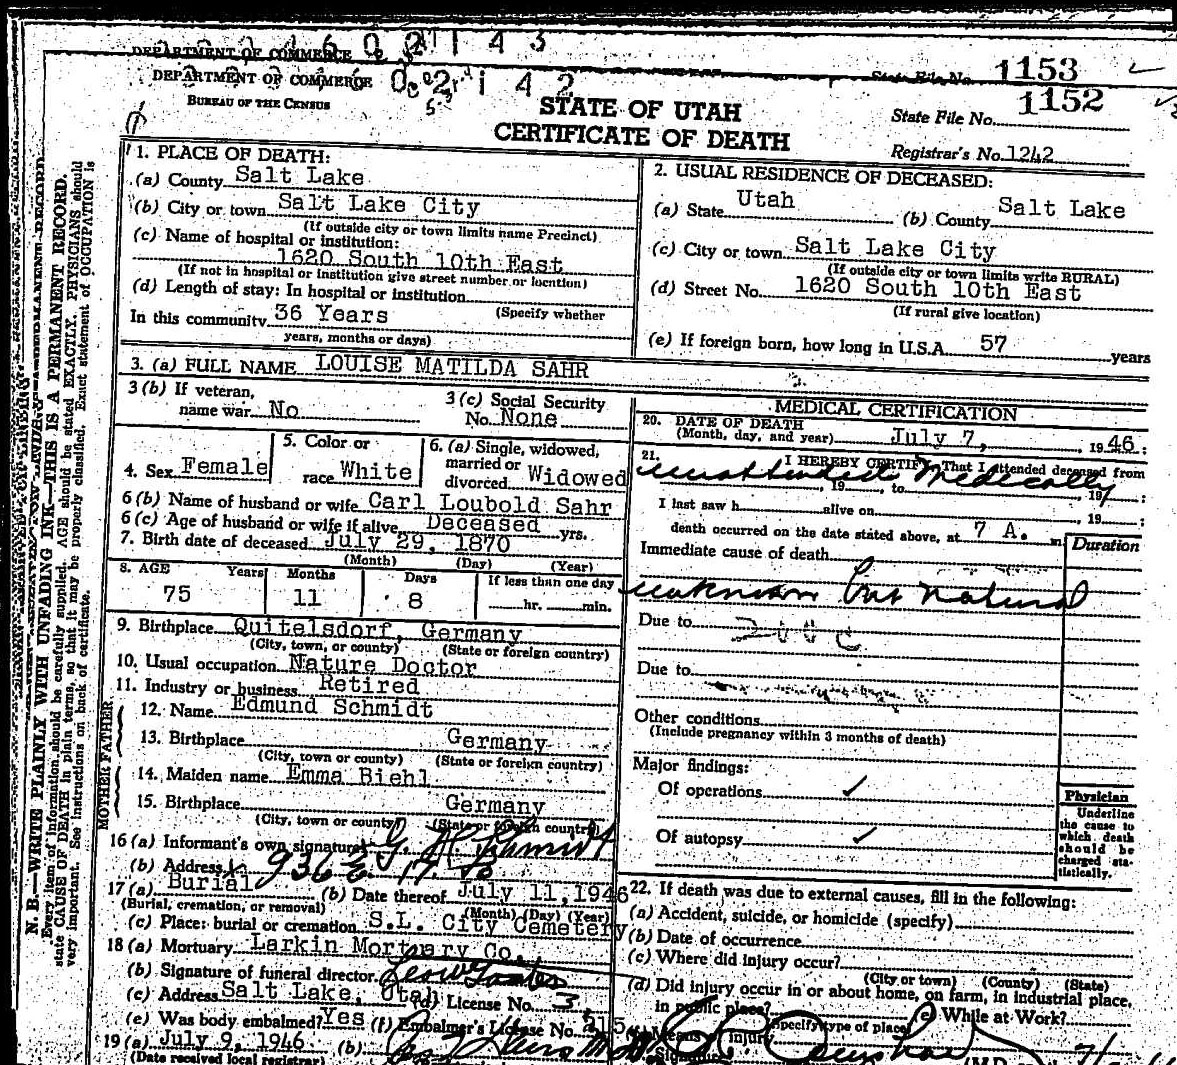 DEPARTMENT OF COMMERCE
State File No. 1153
DEPARTMENT OF COMMERCE
BUREAU OF THE CENSUS
STATE OF UTAH
CERTIFICATE OF DEATH
1152
State File No.
Registrar's No. 1242
N. B.—WRITE PLAINLY WITH UNFADING INK—THIS IS A PERMANENT RECORD.
Every item of information should be carefully supplied. AGE should be stated EXACTLY. PHYSICIANS should
state CAUSE OF DEATH in plain terms, so that it may be properly classified. Exact statement of OCCUPATION is
very important. See instructions on back of certificate.
1. PLACE OF DEATH:
(a) County Salt Lake
(b) City or town Salt Lake City
(If outside city or town limits name Precinct)
(c) Name of hospital or institution:
1620 South 10th East
(If not in hospital or institution give street number or location)
(d) Length of stay: In hospital or institution
(Specify whether
In this community 36 Years
years, months or days)
2. USUAL RESIDENCE OF DECEASED:
(a) State Utah (b) County Salt Lake
(c) City or town Salt Lake City
(If outside city or town limits write RURAL)
(d) Street No. 1620 South 10th East
(If rural give location)
(e) If foreign born, how long in U.S.A. 57 years
3. (a) FULL NAME LOUISE MATILDA SAHR
3 (b) If veteran,
name war No
3 (c) Social Security
No. None
4. Sex Female
5. Color or
race White
6. (a) Single, widowed,
married or
divorced Widowed
6 (b) Name of husband or wife Carl Loubold Sahr
6 (c) Age of husband or wife if alive Deceased yrs.
7. Birth date of deceased July 29, 1870
(Month) (Day) (Year)
8. AGE Years Months Days If less than one day
75 11 8 hr. min.
9. Birthplace Quitelsdorf, Germany
(City, town, or county) (State or foreign country)
10. Usual occupation Nature Doctor
11. Industry or business Retired
FATHER
12. Name Edmund Schmidt
13. Birthplace Germany
(City, town or county) (State or foreign country)
MOTHER
14. Maiden name Emma Biehl
15. Birthplace Germany
(City, town or county) (State or foreign country)
16 (a) Informant's own signature Schmidt
(b) Address 936 E. 17 So
17 (a) Burial (b) Date thereof July 11, 1946
(Burial, cremation, or removal) (Month) (Day) (Year)
(c) Place: burial or cremation S.L. City Cemetery
18 (a) Mortuary Larkin Mortuary Co.
(b) Signature of funeral director
(c) Address Salt Lake, Utah (d) License No. 3
(e) Was body embalmed? Yes (f) Embalmer's License No. 215
19 (a) July 9, 1946 (b)
(Date received local registrar)
MEDICAL CERTIFICATION
20. DATE OF DEATH
(Month, day, and year) July 7, 1946:
21. I HEREBY CERTIFY That I attended deceased from
unattended Medically
, 19 , to , 19 :
I last saw h alive on , 19 :
death occurred on the date stated above, at 7 A. m.
Duration
Immediate cause of death
unknown but natural
Due to 200c
Due to
Other conditions
(Include pregnancy within 3 months of death)
Major findings:
Of operations ✓
Of autopsy ✓
Physician
Underline
the cause to
which death
should be
charged sta-
tistically.
22. If death was due to external causes, fill in the following:
(a) Accident, suicide, or homicide (specify)
(b) Date of occurrence
(c) Where did injury occur?
(City or town) (County) (State)
(d) Did injury occur in or about home, on farm, in industrial place,
in public place?
(Specify type of place)
(e) While at Work?
injury
Signature